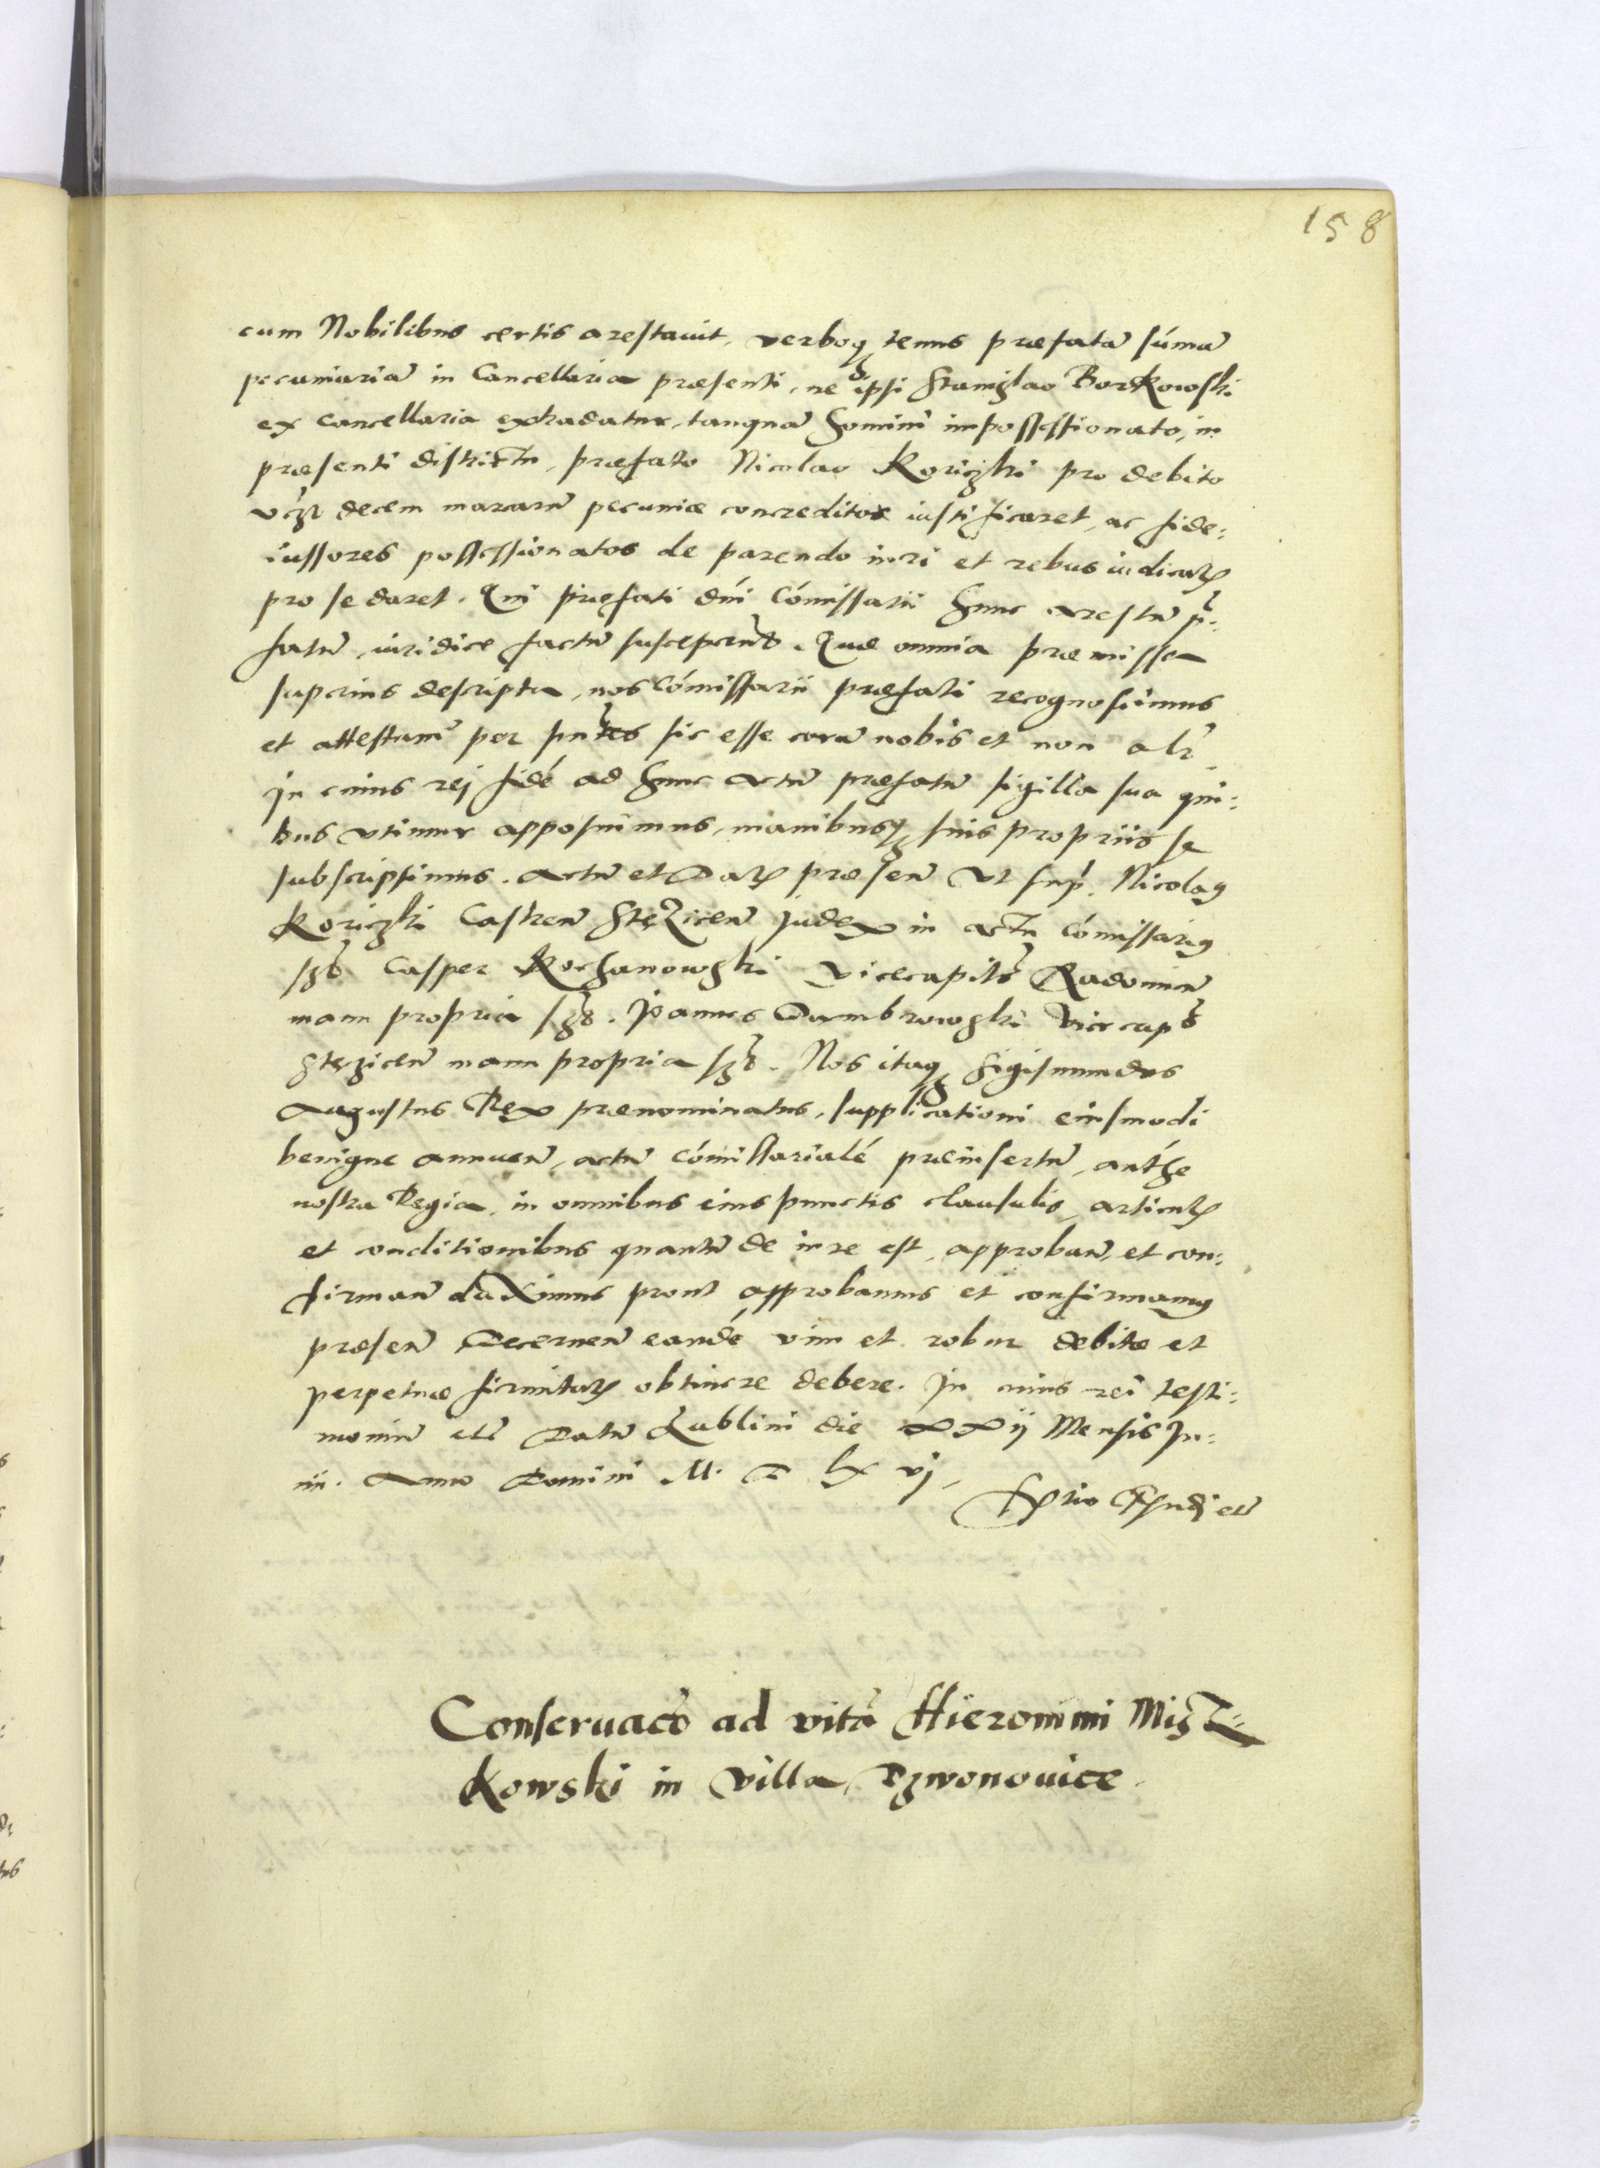 158
cum Nobilibus certis arestavit, verboq tenus præfatā sum̄ā
pecuniariā in Cancellaria præsenti, ne ipsi Stanislao Borkowski
ex Cancellaria extradatur, tanquā homini impossessionato, in
præsenti districtu, præfato Nicolao Koriczki pro debito
decem marcarū pecuniæ concreditæ iustificaret, ac fide:
iussores possessionatos de parendo iuri et rebus iudicatꝭ
pro se daret. Qui præfati dńi Cómissarii hunc arestū p̄:
fatū, iuridice factū susceperūt. Quæ omnia præmissa
superius descripta, nos Cómissarii præfati recognoscimus
et attestamr̄ per pn̄tes sic esse corā nobis et non alr̄
In cuius rej fidé ad hunc actū præfatū sigilla sua qui:
bus utimur apposuimus, manibusq suis propriis se
subscripsimus. Actū et Datꝭ præsen̄ ut sup̄. Nicolaꝯ
Koriczki Castren̄ Stęzicen̄ Judex in actu Cómissariꝯ
sszt Casper Kochanowski Vicecapits̄ Radomien̄
manu propria sszt. Joannes Dambrowski Vicecaps̄
Stęzicen̄ manu propria sszt. Nos itaq Sigismundus
Augustus Rex prænominatus, supplicationi eiusmodi
benigne annuen̄, actū cómissarialé præinsertū, auṫhe
nostra Regia, in omnibus eius punctis clausulis, articulꝭ
et conditionibus quantū de iure est, approban̄, et con:
firman̄ duximus prout approbamus et confirmamꝯ
præsen̄ Decernen̄ eandé vim et robur debitæ et
perpetuæ firmitatꝭ obtinere debere. In cuius rei testi:
moniū etc̄ Datū Lublini die XXij Mensis Ju:
nii. Anno Domini M. D LX vj.
etc̄
Conservaco̅ ad vitā Hieronimi Misz:
kowski in villa Dzwonovice.